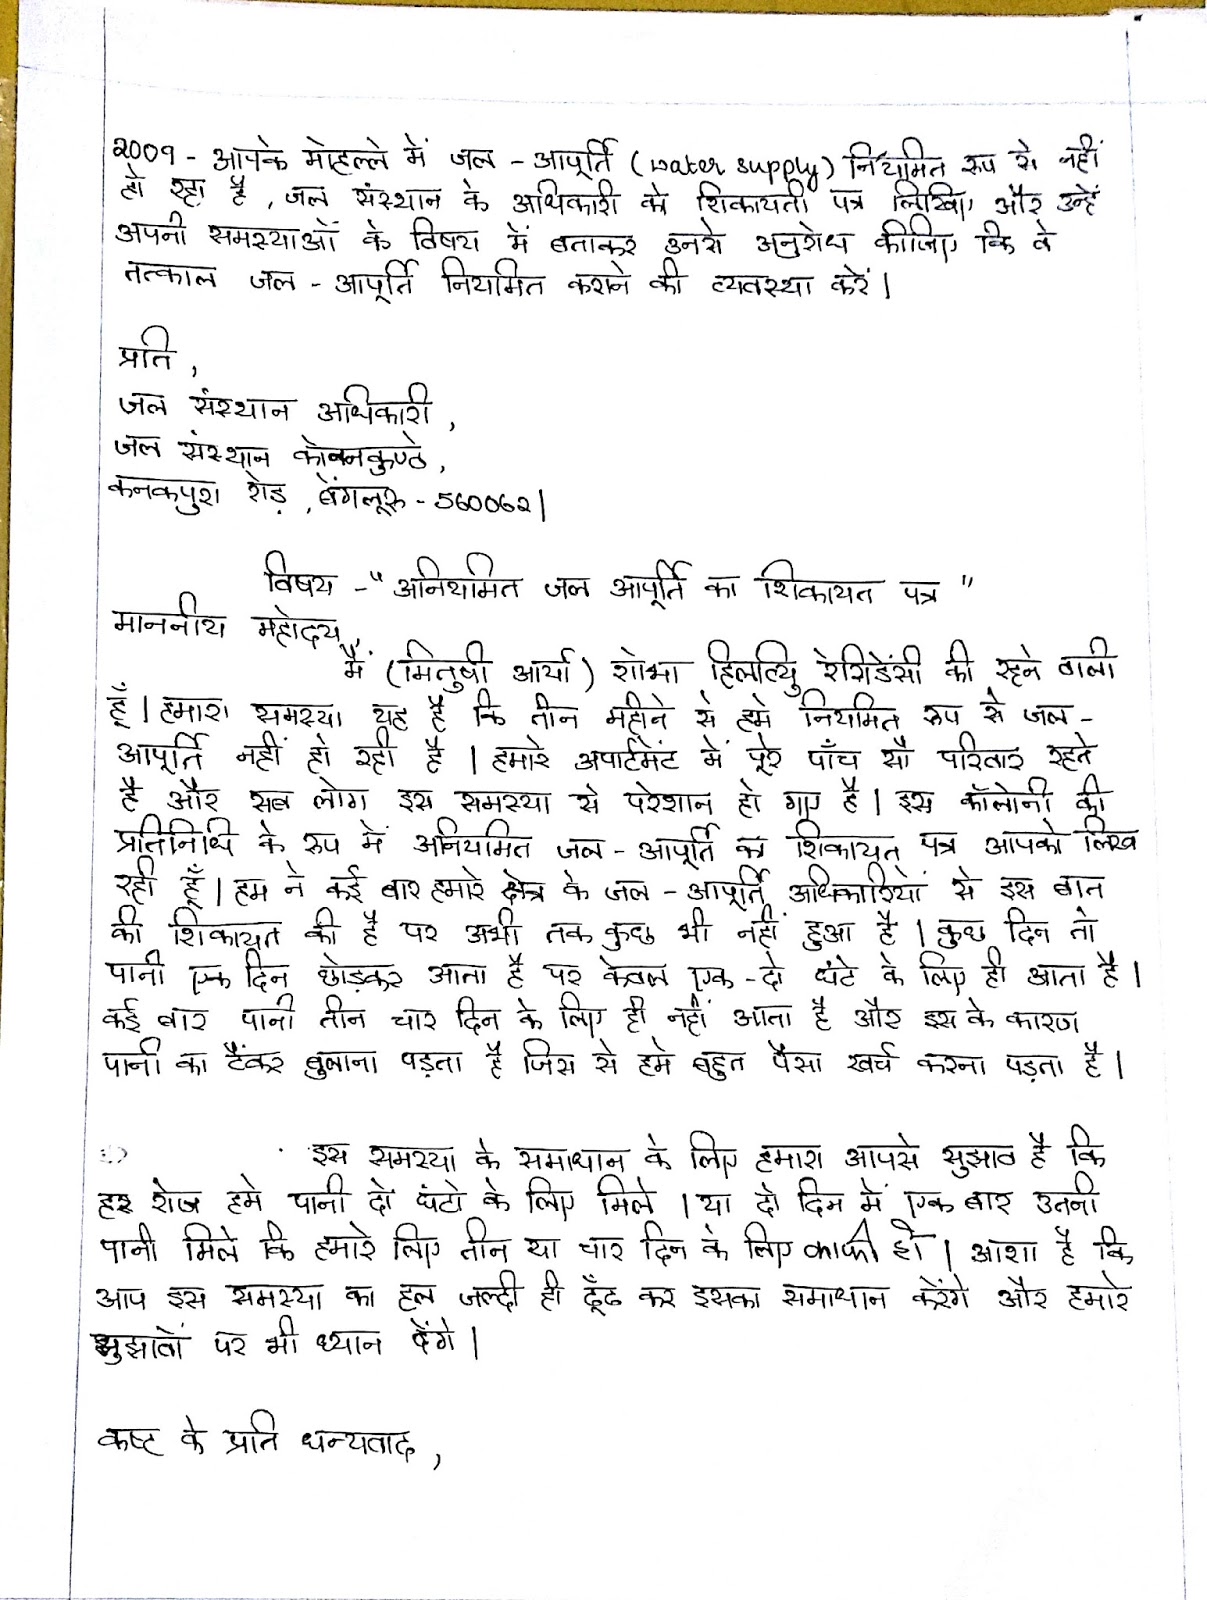 2009 - आपके मोहल्ले में जल - आपूर्ति (water supply) नियमित रूप से नहीं
हो रहा है , जल संस्थान के अधिकारी को शिकायती पत्र लिखिए और उन्हें
अपनी समस्याओं के विषय में बताकर उनसे अनुरोध कीजिए कि वे
तत्काल जल - आपूर्ति नियमित कराने की व्यवस्था करें |
प्रति ,
जल संस्थान अधिकारी ,
जल संस्थान कोननकुण्ठे ,
कनकपुरा रोड़ , बेंगलूरू - 560062 |
विषय - " अनियमित जल आपूर्ति का शिकायत पत्र "
माननीय महोदय,
मैं (मितुषी आर्या) शोभा हिलव्यु रेसिडेंसी की रहने वाली
हूँ | हमारा समस्या यह है कि तीन महीने से हमे नियमित रूप से जल -
आपूर्ति नहीं हो रही है | हमारे अपार्टमेंट में पूरे पाँच सौ परिवार रहते
है और सब लोग इस समस्या से परेशान हो गए है | इस कॉलोनी की
प्रतिनिधि के रूप में अनियमित जल - आपूर्ति का शिकायत पत्र आपको लिख
रही हूँ | हम ने कई बार हमारे क्षेत्र के जल - आपूर्ति अधिकारियों से इस बात
की शिकायत की है पर अभी तक कुछ भी नहीं हुआ है | कुछ दिन तो
पानी एक दिन छोड़कर आता है पर केवल एक - दो घंटे के लिए ही आता है |
कई बार पानी तीन चार दिन के लिए ही नहीं आता है और इस के कारण
पानी का टैंकर बुलाना पड़ता है जिस से हमे बहुत पैसा खर्च करना पड़ता है |
इस समस्या के समाधान के लिए हमारा आपसे सुझाव है कि
हर रोज हमे पानी दो घंटो के लिए मिले | या दो दिन में एक बार उतनी
पानी मिले कि हमारे लिए तीन या चार दिन के लिए काफी हो | आशा है कि
आप इस समस्या का हल जल्दी ही ढूँढ कर इसका समाधान करेंगे और हमारे
सुझावों पर भी ध्यान देंगे |
कष्ट के प्रति धन्यवाद ,